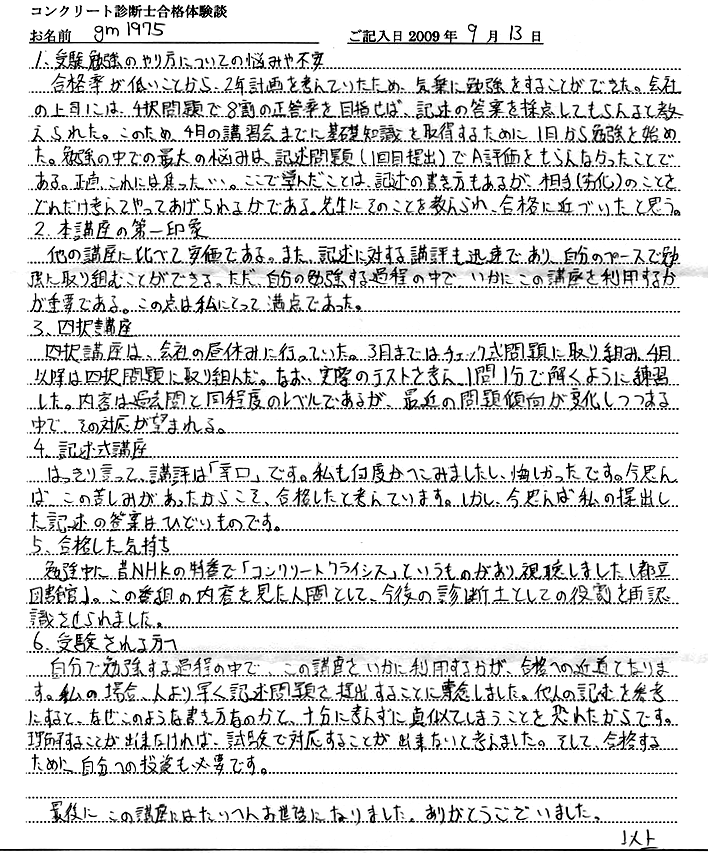 コンクリート診断士合格体験談
お名前 gm1975 ご記入日 2009 年 9 月 13 日
1. 受験勉強のやり方についての悩みや不安
合格率が低いことから、2年計画を考えていたため、気楽に勉強をすることができた。会社
の上司には、4択問題で8割の正答率を目指せば、記述の答案を採点してもらえると教
えられた。このため、4月の講習会までに基礎知識を取得するために1日から勉強を始め
た。勉強の中での最大の悩みは、記述問題(1回目提出)でA評価をもらえなかったことで
ある。正直、これには焦った…。ここで学んだことは、記述の書き方もあるが、相手(劣化)のことを
どれだけ考えてやってあげられるかである。先生にそのことを教えられ、合格に近づいたと思う。
2. 本講座の第一印象
他の講座に比べて安価である。また、記述に対する講評も迅速であり、自分のペースで勉
強に取り組むことができる。ただ、自分の勉強する過程の中で、いかにこの講座を利用するか
が重要である。この点は私にとって満点であった。
3. 四択講座
四択講座は、会社の昼休みに行っていた。3月まではチェック式問題に取り組み、4月
以降は四択問題に取り組んだ。なお、実際のテストを考え、1問1分で解くように練習
した。内容は過去問と同程度のレベルであるが、最近の問題傾向が変化しつつある
中で、その対応が望まれる。
4. 記述式講座
はっきり言って、講評は「辛口」です。私も何度かへこみましたし、悔しかったです。今思え
ば、この苦しみがあったからこそ、合格したと考えています。しかし、今思えば私の提出し
た記述の答案はひどいものです。
5. 合格した気持ち
勉強中に昔NHKの特番で「コンクリートクライシス」というものがあり、視聴しました(都立
図書館)。この番組の内容を見た人間として、今後の診断士としての役割を再認
識させられました。
6. 受験される方へ
自分で勉強する過程の中で、この講座をいかに利用するかが、合格への近道となりま
す。私の場合、人より早く記述問題を提出することに専念しました。他人の記述を参考
にすると、なぜこのような書き方なのかと、十分に考えずに真似てしまうことを恐れたからです。
理解することが出来なければ、試験で対応することが出来ないと考えました。そして、合格する
ために自分への投資も必要です。
最後に、この講座にはたいへんお世話になりました。ありがとうございました。
以上